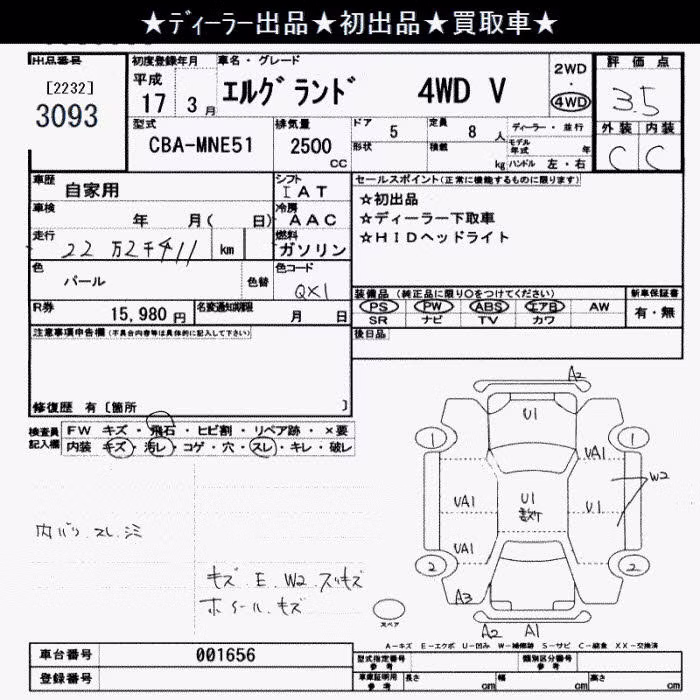 ★ディーラー出品★初出品★買取車★
出品番号
[2232]
3093
初度登録年月
平成
17 3 月
車名・グレード
エルグランド 4WD V
2WD
・
4WD
評価点
3.5
外装 内装
C C
型式
CBA-MNE51
排気量
2500
cc
ドア 5
定員 8 人
ディーラー・並行
形状
積載 kg
モデル年式 年
ハンドル 左・右
車歴
自家用
シフト
IAT
車検
年 月( 日)
冷房
AAC
走行
22万2千411 km
燃料
ガソリン
色
パール
色替
色コード
QX1
R券
15,980 円
名変通知期限
月 日
セールスポイント(正常に機能するものに限ります)
☆初出品
☆ディーラー下取車
☆HIDヘッドライト
装備品 (純正品に限り〇をつけてください)
新車保証書
PS PW ABS エアB AW
SR ナビ TV カワ
有・無
後日品
注意事項申告欄(不具合内容等は具体的に記入して下さい)
修復歴 有[箇所 ]
検査員
記入欄
FW キズ・飛石・ヒビ割・リペア跡・×要
内装 キズ・汚レ・コゲ・穴・スレ・キレ・破レ
内バリ、スレ、シミ
キズ E W2 スリキズ
ホイールキズ
A2
U1
1
1
UA1
UA1
U1
U1
W2
UA1
2
2
A3
A2 A1
スペア
A-キズ E-エクボ U-凹み W-補修跡 S-サビ C-腐食 XX-交換済
車台番号
001656
登録番号
型式指定番号
参考
類別区分番号
参考
車庫証明用
参考
長さ cm
幅 cm
高さ cm